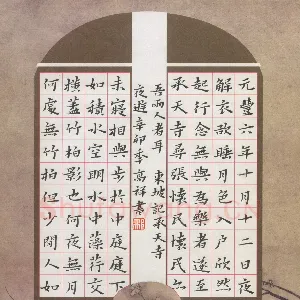 元豐六年十月十二日夜
解衣欲睡月色入戶欣然
起行念無與為樂者遂至
承天寺尋張懷民懷民亦
未寢相與步於中庭庭下
如積水空明水中藻荇交
橫蓋竹柏影也何夜無月
何處無竹柏但少閒人如
吾兩人者耳 東坡記承天寺
夜遊辛卯季高祥書